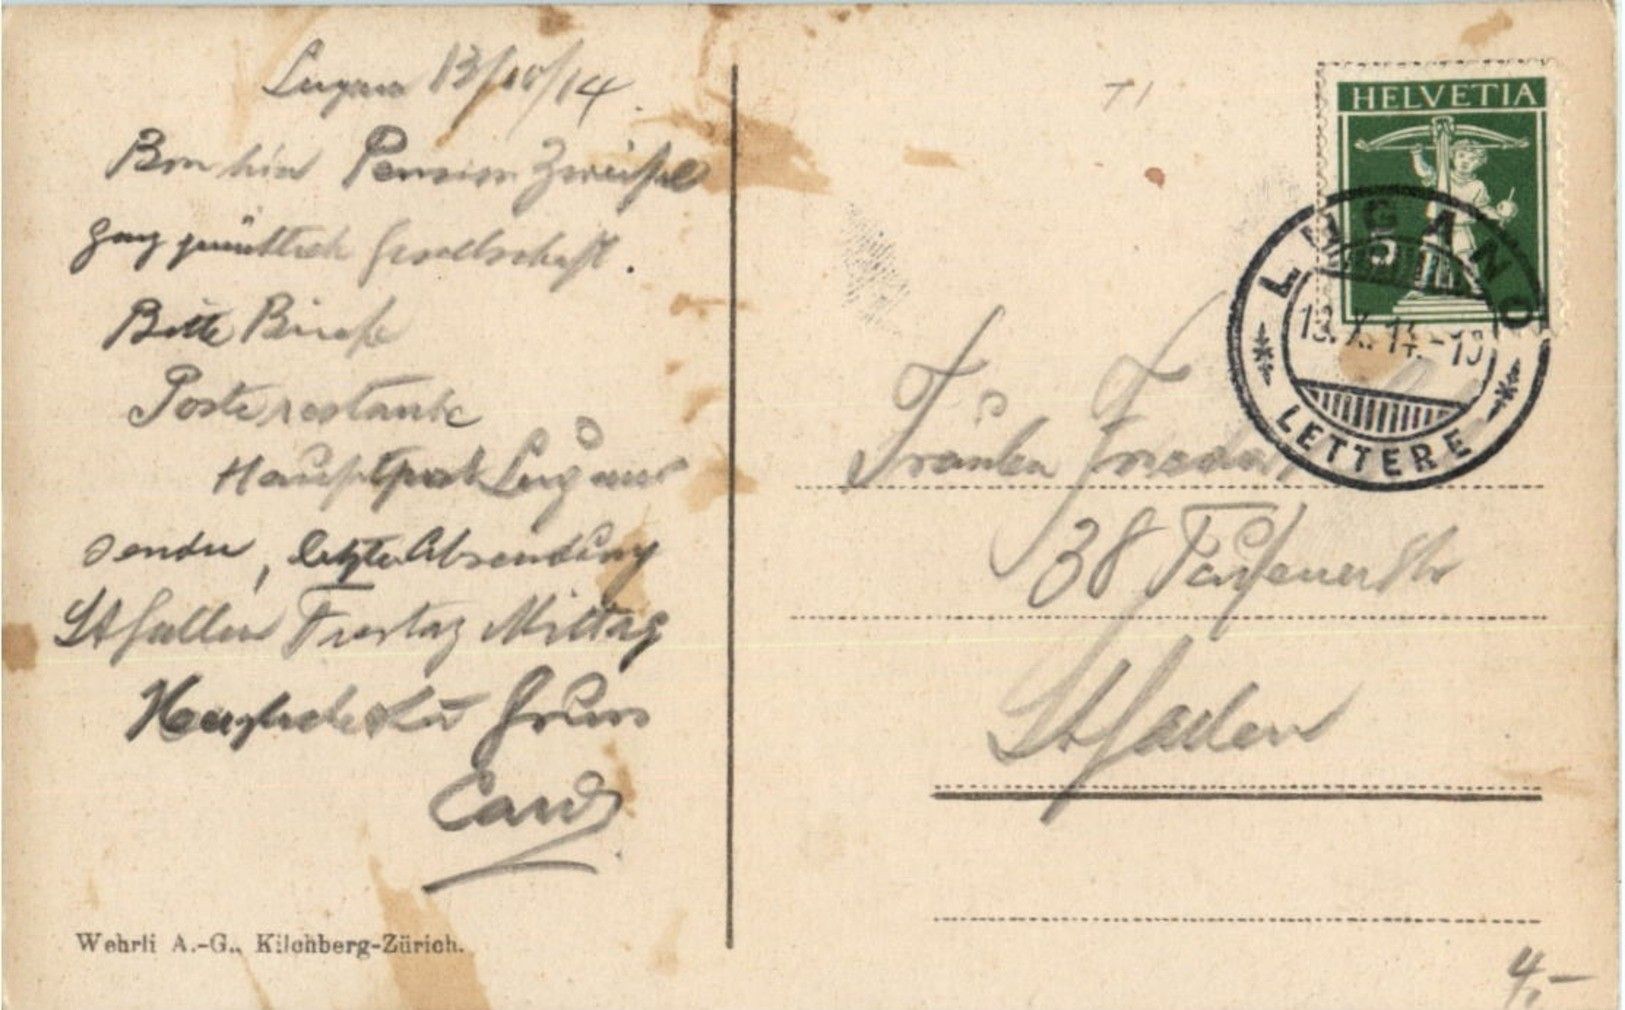 Lugano 13/10/14.
Bin hier Pension Zweifel
ganz gemütlich Gesellschaft.
Bitte Briefe
Poste restante
Hauptpost Lugano
senden, letzte Absendung
St Gallen Freitag Mittag
Gruss
Wehrli A.-G., Kilchberg-Zürich.
T1
HELVETIA
5
LUGANO
13.X.14.-19
LETTERE
Fräulein
38
St Gallen
4,-